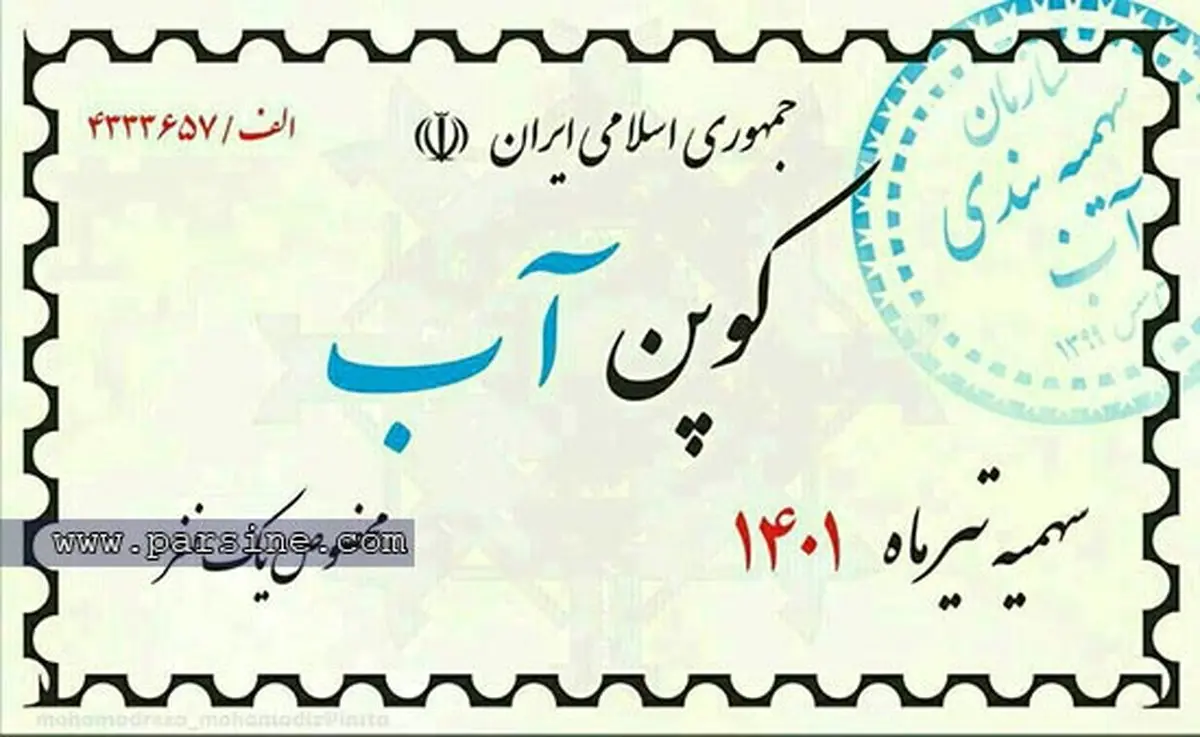 الف/۴۳۳۳۶۵۷
جمهوری اسلامی ایران
سازمان
سهمیه بندی
آب
تاسیس ۱۳۹۹
کوپن آب
سهمیه تیر ماه ۱۴۰۱
مخصوص یک نفر
www.parsine.com